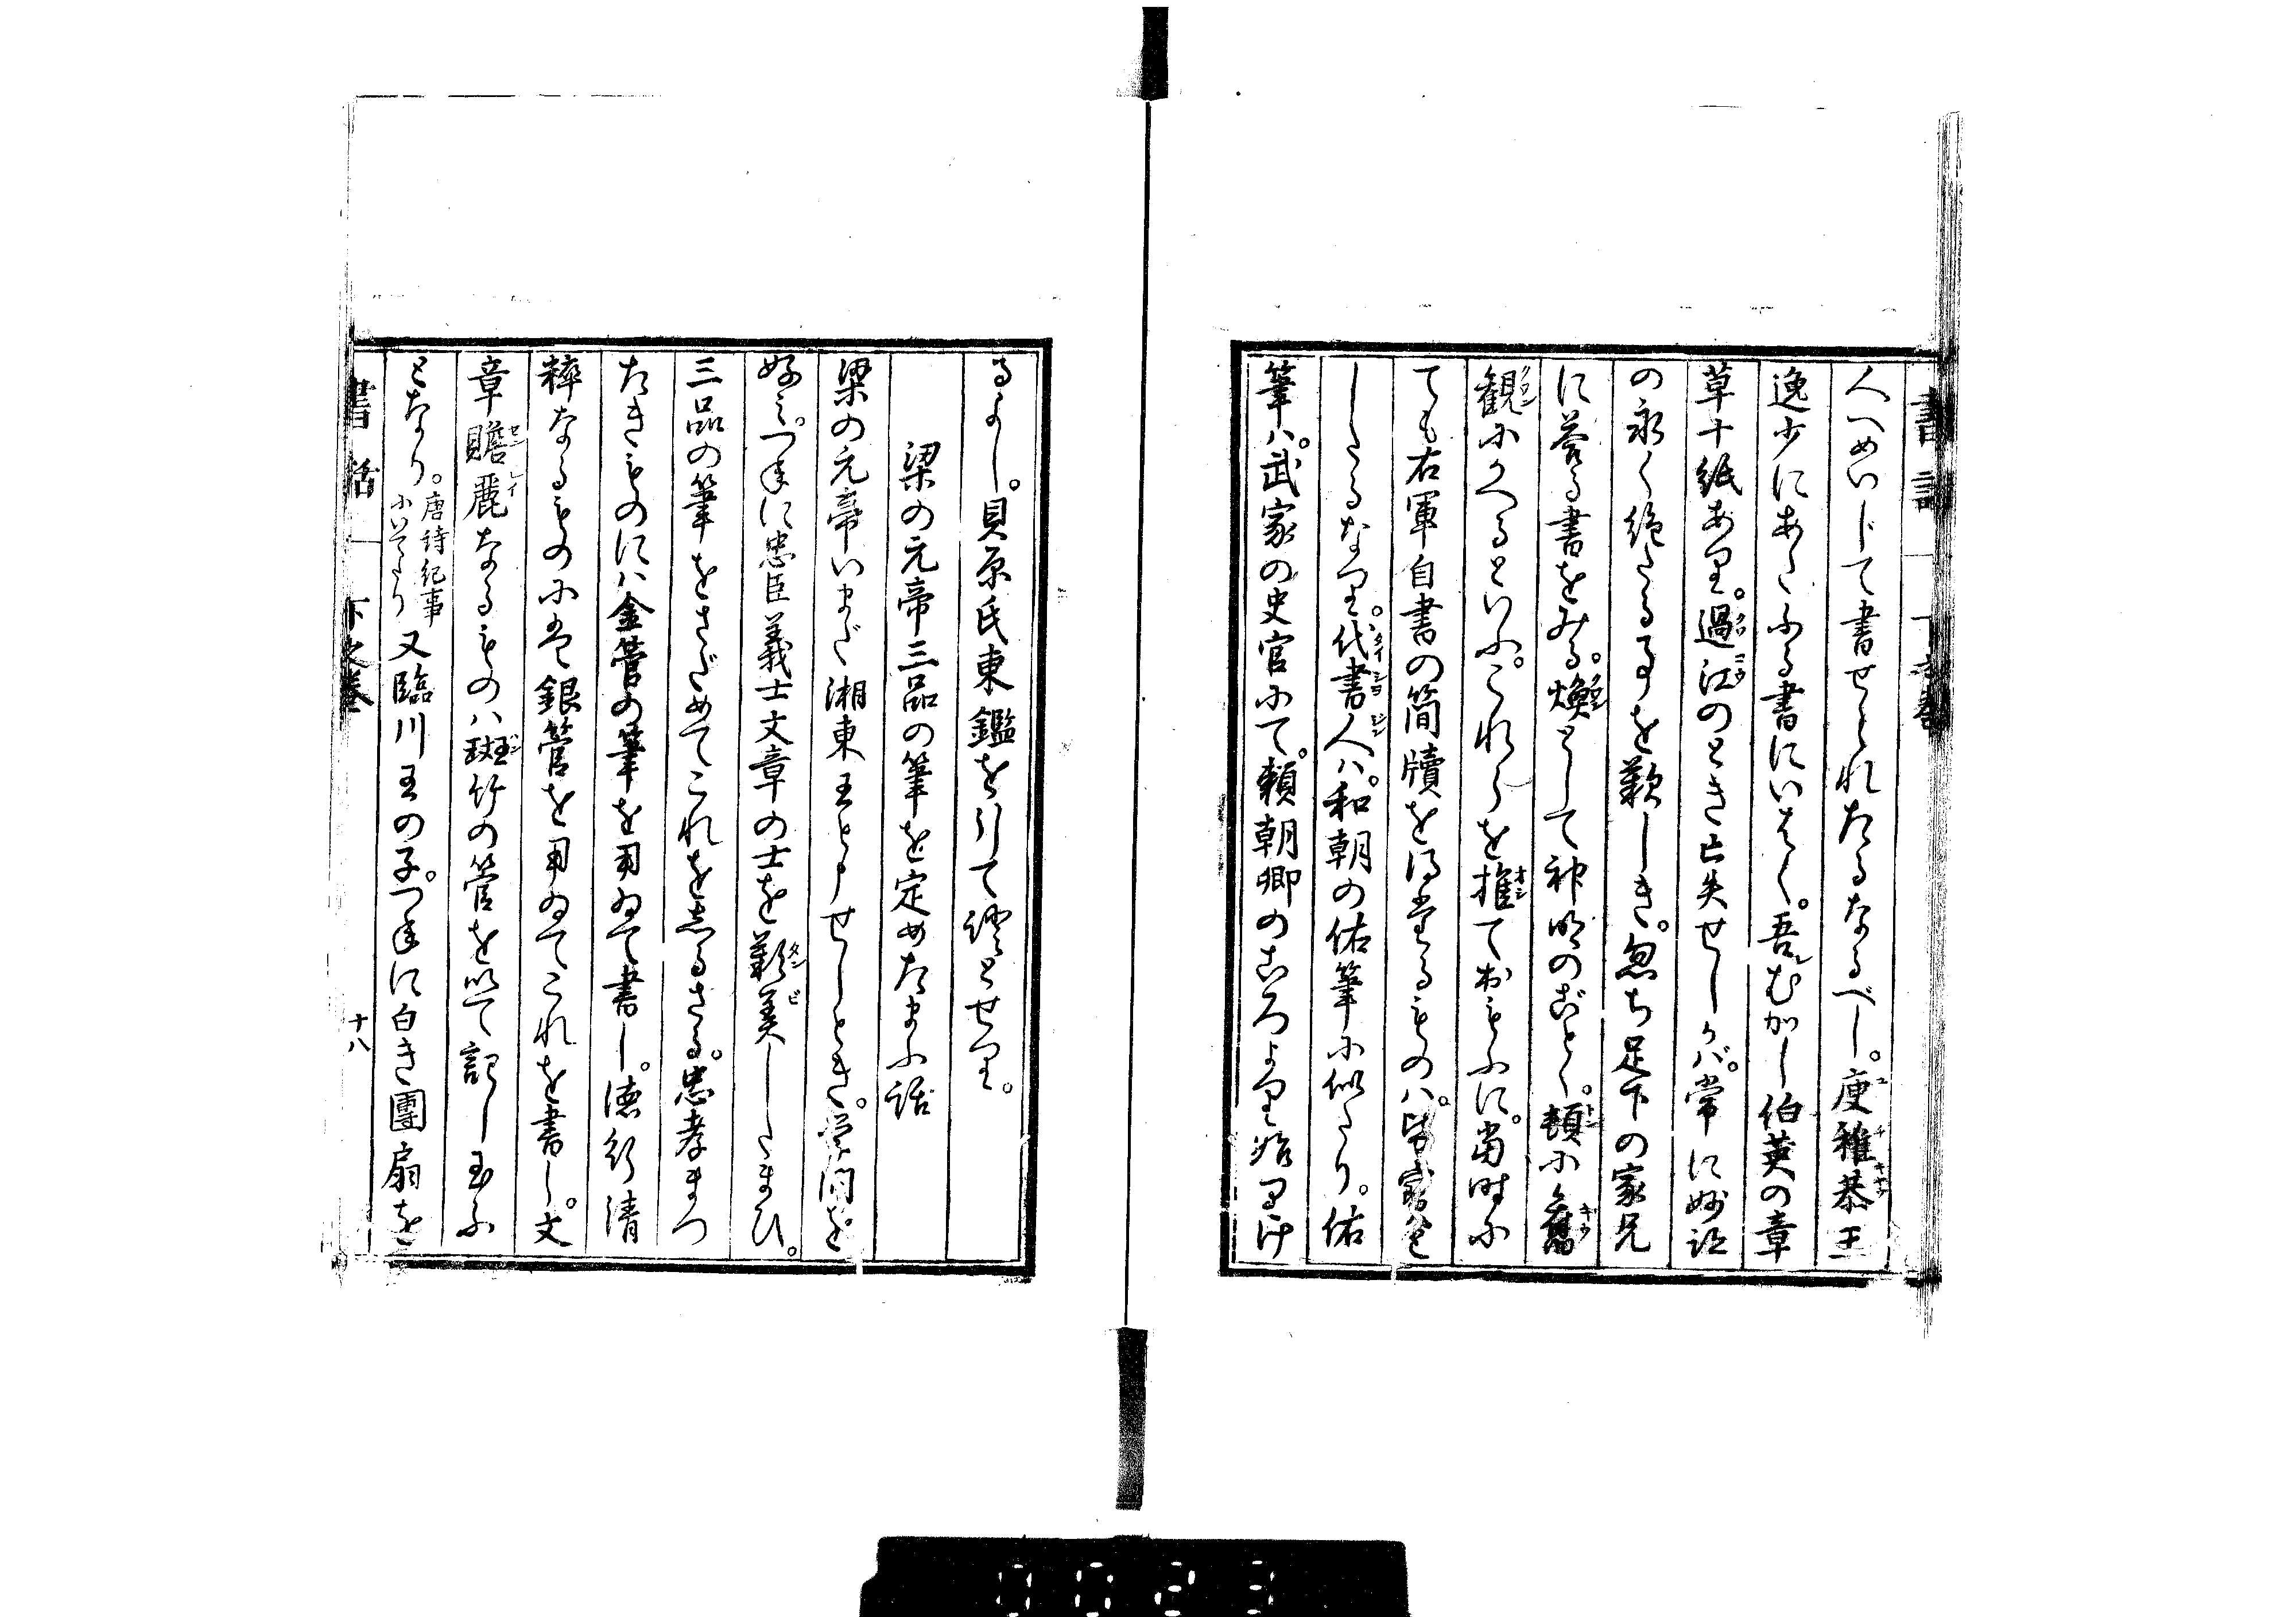 人へめいじて書せられたるなるべし。庾稚恭王
逸少にあたふる書にいはく。吾むかし伯英の章
草十紙あり。過江のとき亡失せしかバ。常に妙迹
の永く絶たる事を歎しき。忽ち足下の家兄
に答る書をみる。煥として神明のごとく。頓に舊
観にかへるといふ。これらを推ておもふに。當時に
ても右軍自書の簡牘を得
たるものハ。皆
したるなり。代書人ハ。和朝の佑筆に似たり。佑
筆ハ。武家の史官にて。頼朝卿のころより始りけ
るよし。貝原氏東鑑を引て證とせり。
梁の元帝三品の筆を定めたまふ話
梁の元帝いまだ湘東王と申せしとき。学問を
好み。つねに忠臣義士文章の士を歎美したまひ。
三品の筆をさだめてこれをしるさる。忠孝まつ
たきものにハ金管の筆を用ゐて書し。徳行清
粹なるものには銀管を用ゐてこれを書し。文
章贍麗なるものハ斑竹の管を以て記し玉ふ
となり。唐詩紀事にいでたり又臨川王の子。つねに白き團扇を
書話 下之巻 十八